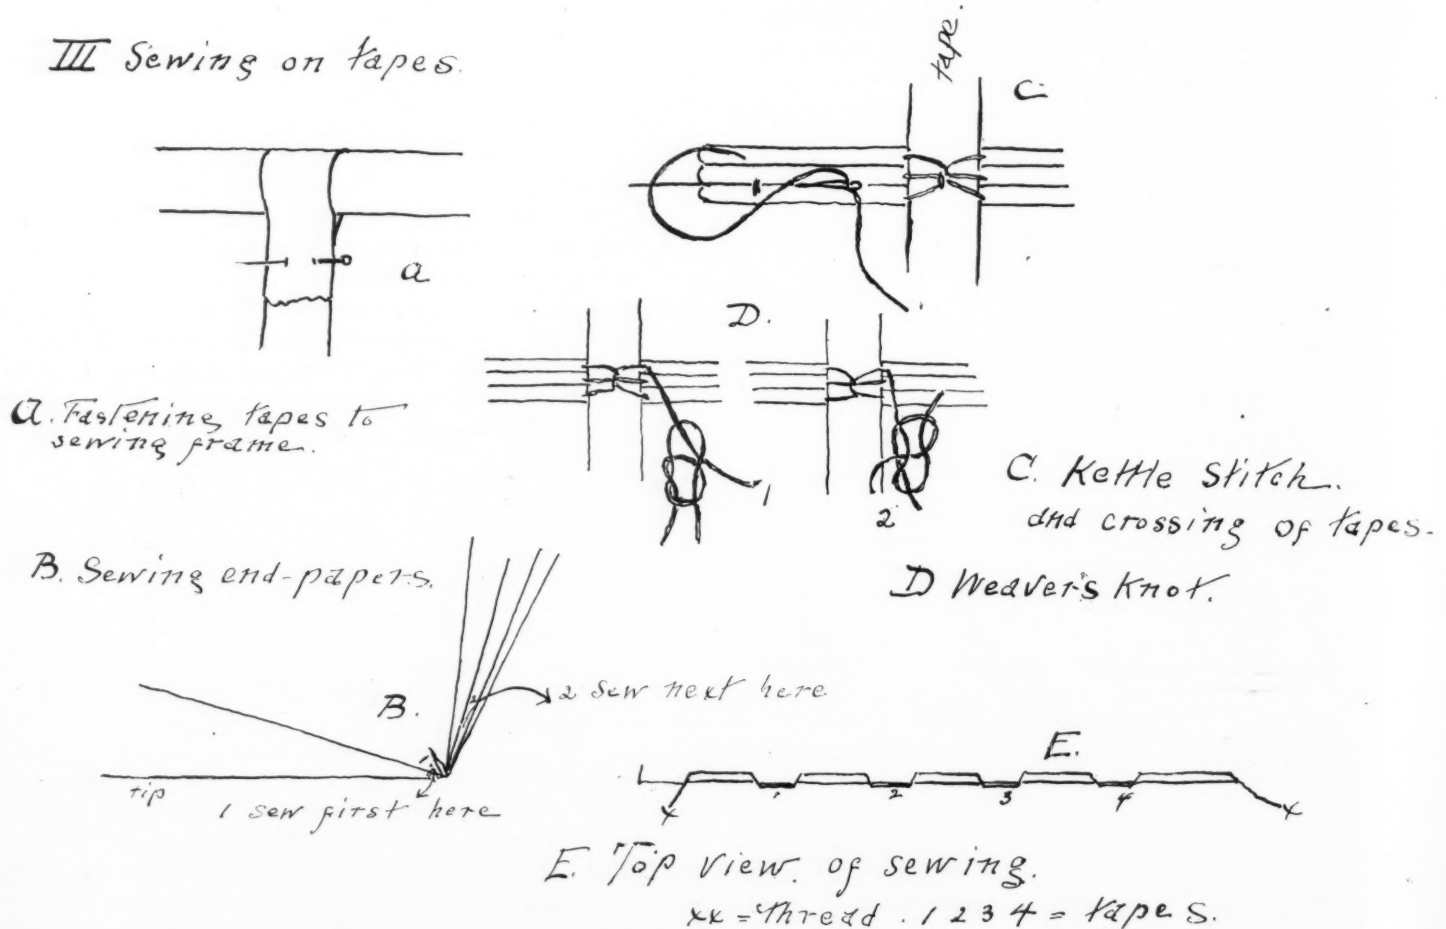 III Sewing on tapes.
tape.
C
a
D.
1
2
a. Fastening tapes to
sewing frame.
C. Kettle Stitch.
and crossing of tapes.
D Weaver's Knot.
B. Sewing end-papers.
B.
2 sew next here
tip
1 sew first here
E.
x 1 2 3 4 x
E. Top view. of sewing.
xx = thread . 1 2 3 4 = tapes.